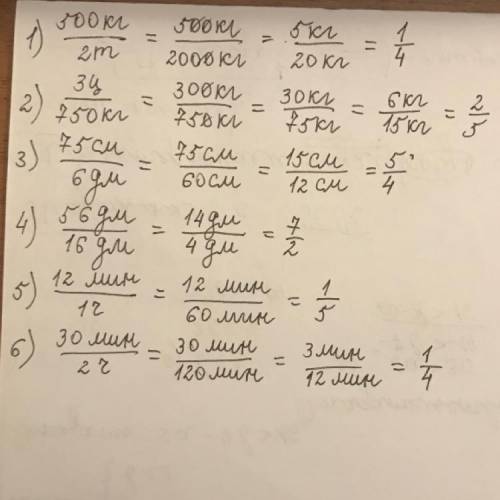 1) 500кг/2т = 500кг/2000кг = 5кг/20кг = 1/4
2) 3ц/750кг = 300кг/750кг = 30кг/75кг = 6кг/15кг = 2/5
3) 75см/6дм = 75см/60см = 15см/12см = 5/4
4) 56дм/16дм = 14дм/4дм = 7/2
5) 12 мин/1ч = 12 мин/60 мин = 1/5
6) 30 мин/2ч = 30 мин/120 мин = 3 мин/12 мин = 1/4